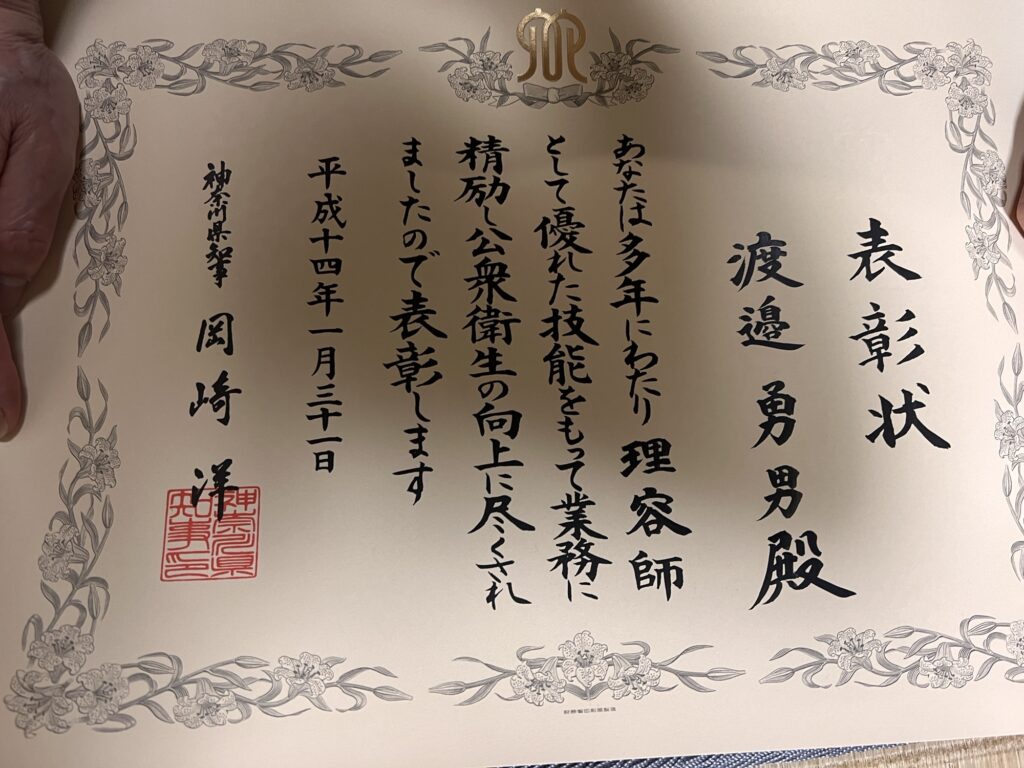 表彰状
渡邉勇男殿
あなたは多年にわたり理容師
として優れた技能をもって業務に
精励し公衆衛生の向上に尽くされ
ましたので表彰します
平成十四年一月三十一日
神奈川県知事 岡崎洋
神奈川県知事印